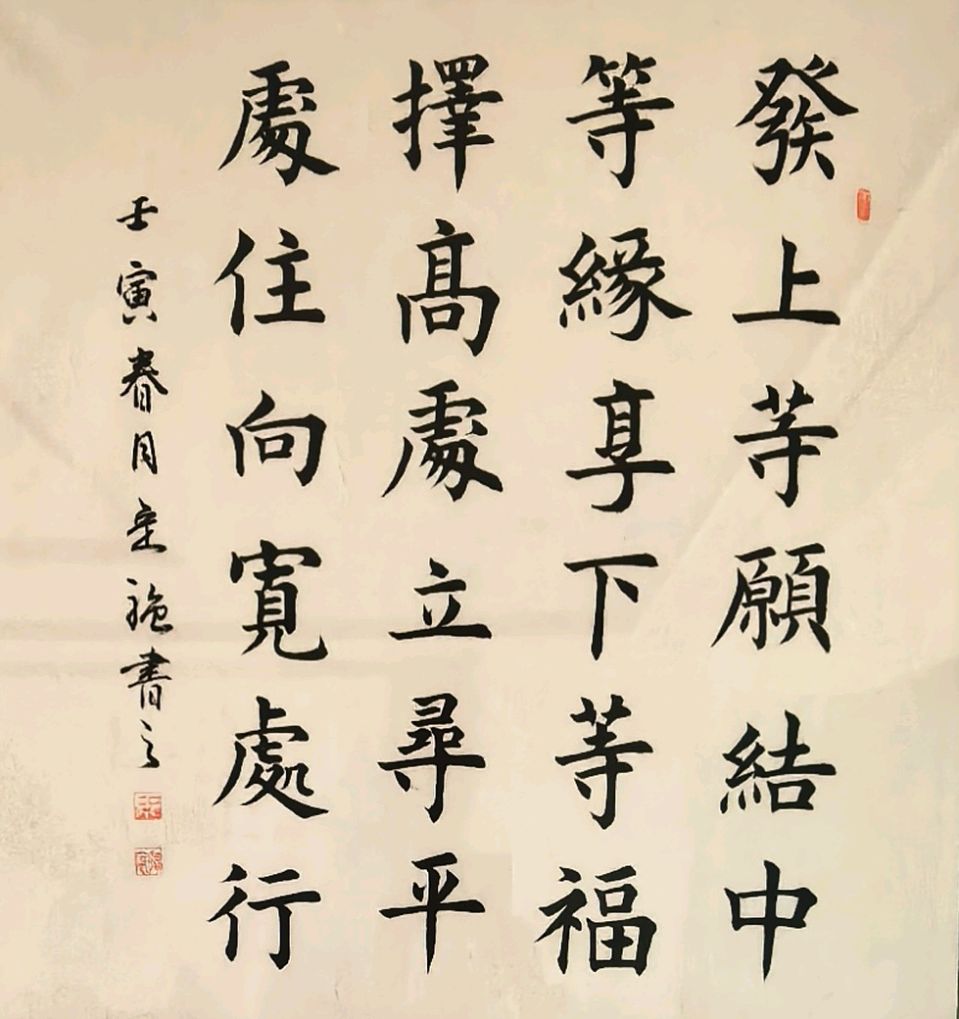 發上等願結中
等緣享下等福
擇高處立尋平
處住向寬處行
壬寅春月 書之